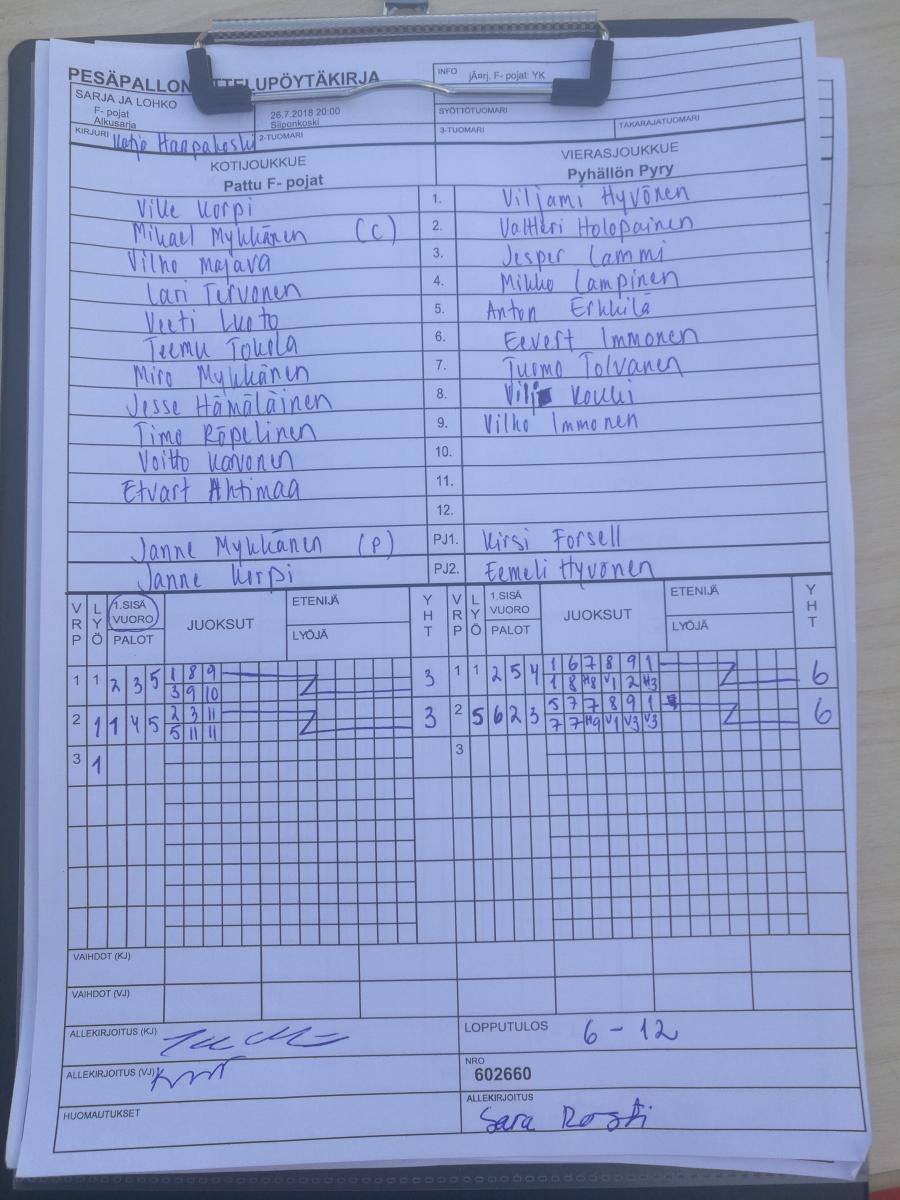 PESÄPALLON OTTELUPÖYTÄKIRJA
INFO jÄ¤rj, F- pojat: YK
SARJA JA LOHKO
F- pojat
Alkusarja
26.7.2018 20:00
Siiponkoski
SYÖTTÖTUOMARI
KIRJURI Katja Haapakoski
2-TUOMARI
3-TUOMARI
TAKARAJATUOMARI
KOTIJOUKKUE
Pattu F- pojat
VIERASJOUKKUE
Pyhällön Pyry
Ville Korpi 1. Viljami Hyvönen
Mikael Mykkänen (C) 2. Valtteri Holopainen
Vilho Majava 3. Jesper Lammi
Lari Tervonen 4. Mikko Lampinen
Veeti Luoto 5. Anton Erkkilä
Teemu Tokola 6. Eevert Immonen
Miro Mykkänen 7. Tuomo Tolvanen
Jesse Hämäläinen 8. Kouki
Timo Röpelinen 9. Vilho Immonen
Voitto Kavonen 10.
Etvart Ahtimaa 11.
12.
Janne Mykkänen (P) PJ1. Kirsi Forsell
Janne Korpi PJ2. Eemeli Hyvönen
VRP LYÖ 1.SISÄ VUORO PALOT JUOKSUT ETENIJÄ LYÖJÄ YHT VRP LYÖ 1.SISÄ VUORO PALOT JUOKSUT ETENIJÄ LYÖJÄ YHT
1 1 2 3 5 1 8 9 3 1 1 2 5 4 1 6 7 8 9 1 6
3 9 10 1 8 H8 V1 2 H3
2 1 1 4 5 2 3 11 3 2 5 6 2 3 5 7 7 8 9 1 6
5 11 11 7 7 H9 V1 V3 V3
3 1 3
VAIHDOT (KJ)
VAIHDOT (VJ)
ALLEKIRJOITUS (KJ)
LOPPUTULOS 6 - 12
ALLEKIRJOITUS (VJ)
NRO
602660
HUOMAUTUKSET
ALLEKIRJOITUS
Sara Rosti